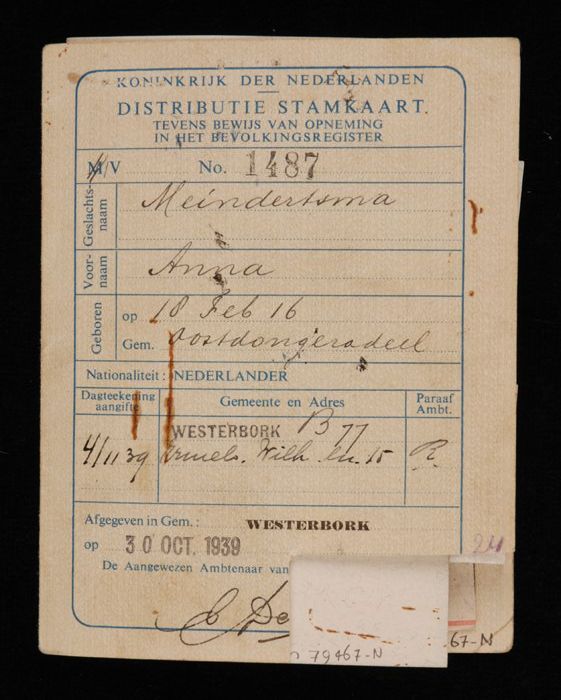 KONINKRIJK DER NEDERLANDEN
DISTRIBUTIE STAMKAART
TEVENS BEWIJS VAN OPNEMING
IN HET BEVOLKINGSREGISTER
M/V No. 1487
Geslachts-
naam
Meindertsma
Voor-
naam
Anna
Geboren
op 18 Feb 16
Gem. Oostdongeradeel
Nationaliteit: NEDERLANDER
Dagteekening
aangifte
Gemeente en Adres
Paraaf
Ambt.
WESTERBORK B 77
4/11 39 Wilh. ln. 15 R.
Afgegeven in Gem.: WESTERBORK
op 30 OCT. 1939
De Aangewezen Ambtenaar van
24
67-N
79467-N